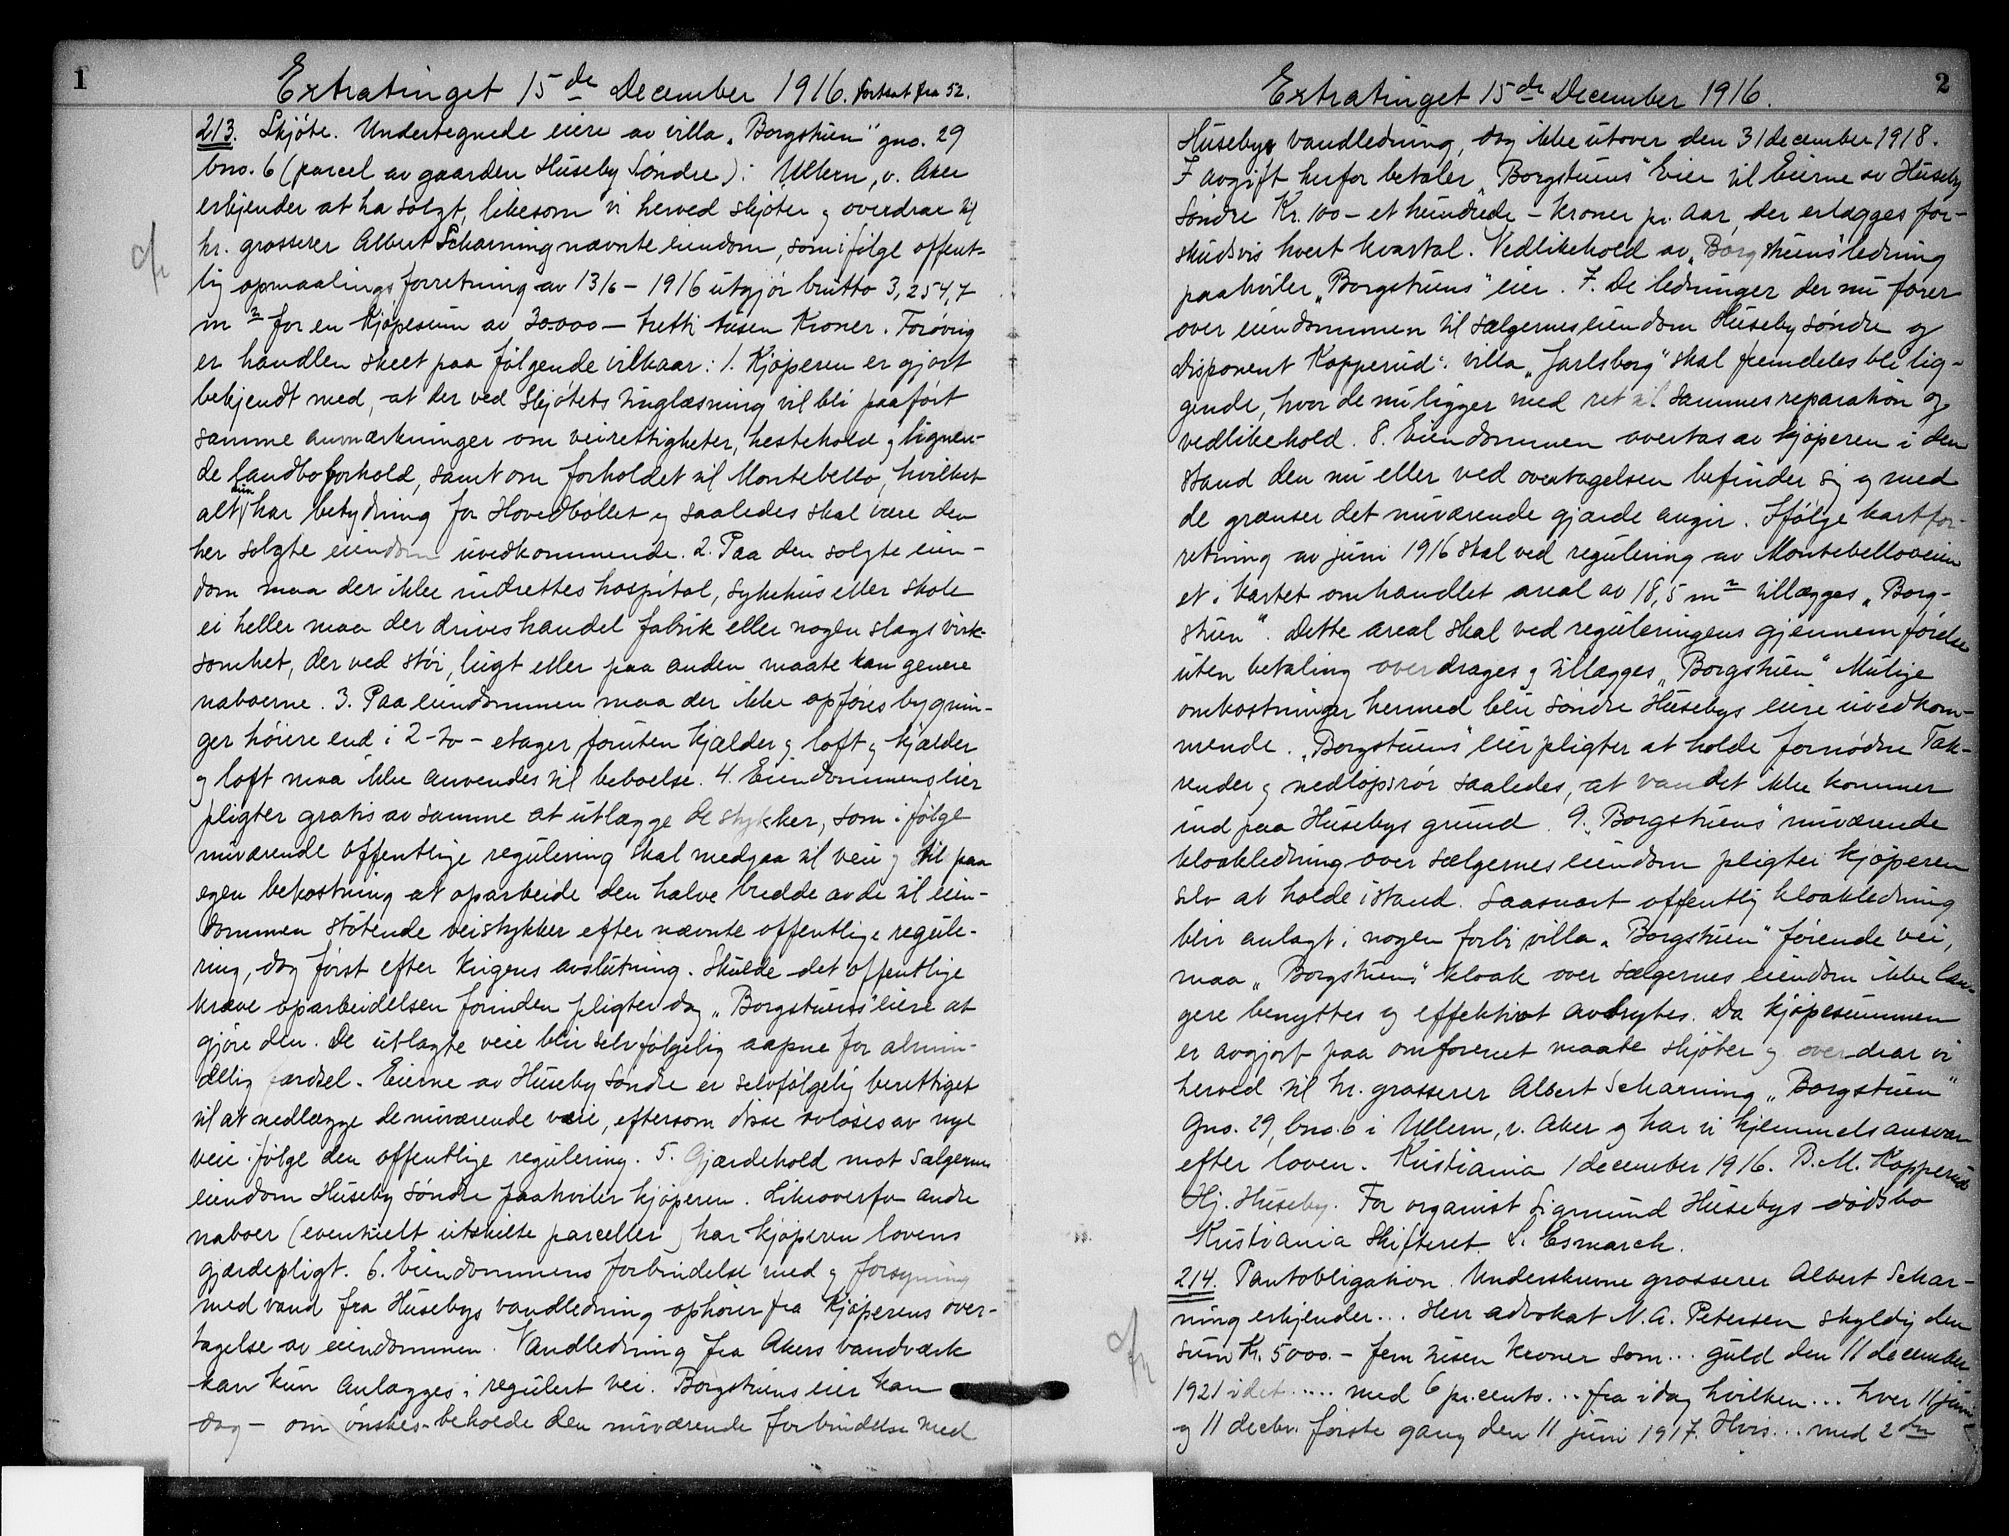 1
Extratinget 15de December 1916. Fortsat fra 52.
213. Skjøte. Undertegnede eiere av villa „Borgstuen" gno. 29
bno. 6 (parcel av gaarden Huseby Søndre) i Ullern, v. Aker
erkjender at ha solgt, likesom vi herved skjøter og overdrar til
hr. grosserer Albert Scharning nævnte eiendom, som ifølge offent-
lig opmaalingsforretning av 13/6 - 1916 utgjør brutto 3,254,7
m² for en kjøpesum av 30000 - tretti tusen Kroner. Forøvrig
er handlen skeet paa følgende vilkaar: 1. Kjøperen er gjort
bekjendt med, at der ved Skjøtets tinglæsning vil bli paaført
samme anmærkninger om veirettigheter, hestehold og lignen-
de landboforhold, samt om forholdet til Montebello, hvilket
alt kun har betydning for Hovedbøllet og saaledes skal være den
her solgte eiendom uvedkommende. 2. Paa den solgte eien-
dom maa der ikke indrettes hospital, sykehus eller skole
ei heller maa der drives handel fabrik eller nogen slags virk-
somhet, der ved støi, lugt eller paa anden maate kan genere
naboerne. 3. Paa eiendommen maa der ikke opføres bygnin-
ger høiere end i 2 - to - etager, foruten kjælder og loft og kjælder
og loft maa ikke anvendes til beboelse. 4. Eiendommens eier
pligter gratis av samme at utlægge de stykker, som ifølge
nuværende offentlige regulering skal medgaa til veie og til paa
egen bekostning at oparbeide den halve bredde av de til eien-
dommen støtende veistykker efter nævnte offentlige regule-
ring, dog først efter krigens avslutning. Skulde det offentlige
kræve oparbeidelsen forinden pligter dog „Borgstuens" eiere at
gjøre den. De utlagte veie blir selvfølgelig aapne for almin-
delig færdsel. Eierne av Huseby Søndre er selvfølgelig berettiget
til at nedlægge de nuværende veie, eftersom disse avløses av nye
veie ifølge den offentlige regulering. 5. Gjærdehold mot Sælgernes
eiendom Huseby Søndre paahviler kjøperen. Likeoverfor andre
naboer (eventuelt utskilte parceller) har kjøperen lovens
gjærdepligt. 6. Eiendommens forbindelse med og forsyning
med vand fra Husebys vandledning ophører fra kjøperens over-
tagelse av eiendommen. Vandledning fra Akers vandværk
kan kun anlægges i regulert vei. Borgstuens eier kan
dog - om ønskes - beholde den nuværende forbindelse med
2
Extratinget 15de December 1916.
Husebys vandledning, dog ikke utover den 31 december 1918.
I avgift herfor betaler „Borgstuens" Eier til Eierne av Huseby
Søndre Kr. 100 - et hundrede - Kroner pr. Aar, der erlægges for-
skudsvis hvert kvartal. Vedlikehold av „Borgstuens" ledning
paahviler „Borgstuens" eier. 7. De ledninger der nu fører
over eiendommen til sælgernes eiendom Huseby søndre og
disponent Kopperud's villa „Jarlsborg" skal fremdeles bli lig-
gende, hvor de nu ligger med ret til sammes reparation og
vedlikehold. 8. Eiendommen overtas av kjøperen i den
stand den nu eller ved overtagelsen befinder sig og med
de grænser det nuværende gjærde angir. Ifølge kartfor-
retning av juni 1916 skal ved regulering av Montebelloveien
et i kartet omhandlet areal av 18,5 m² tillægges „Borg-
stuen". Dette areal skal ved reguleringens gjennemførelse
uten betaling overdrages og tillægges „Borgstuen" Mulige
omkostninger hermed blir Søndre Husebys eiere uvedkom-
mende. „Borgstuens" eier pligter at holde fornødne Tak-
render og nedløpsrør saaledes, at vandet ikke kommer
ind paa Husebys grund. 9. „Borgstuens" nuværende
kloakledning over sælgernes eiendom pligter kjøperen
selv at holde istand. Saasnart offentlig kloakledning
blir anlagt i nogen forbi villa „Borgstuen" førende vei,
maa „Borgstuens" kloak over sælgernes eiendom ikke læn-
gere benyttes og effektivt avbrytes. Da kjøpesummen
er avgjort paa omforenet maate skjøter og overdrar vi
herved til hr. grosserer Albert Scharning „Borgstuen"
Gno. 29, bno. 6 i Ullern, v. Aker og har vi hjemmelsansvar
efter loven. Kristiania 1 december 1916. B. M. Kopperud
Hj. Huseby. For organist Sigmund Husebys dødsbo
Kristiania Skifteret. L. Esmarch.
214. Pantobligation. Underskrevne grosserer Albert Schar-
ning erkjender... Herr advokat N. A. Petersen skyldig den
sum Kr. 5000. - fem tusen kroner som... guld den 11 december
1921 i det..... med 6 pr. cento... fra idag hvilken... hver 11 juni
og 11 decbr. første gang den 11 juni 1917. Hvis... med 2den